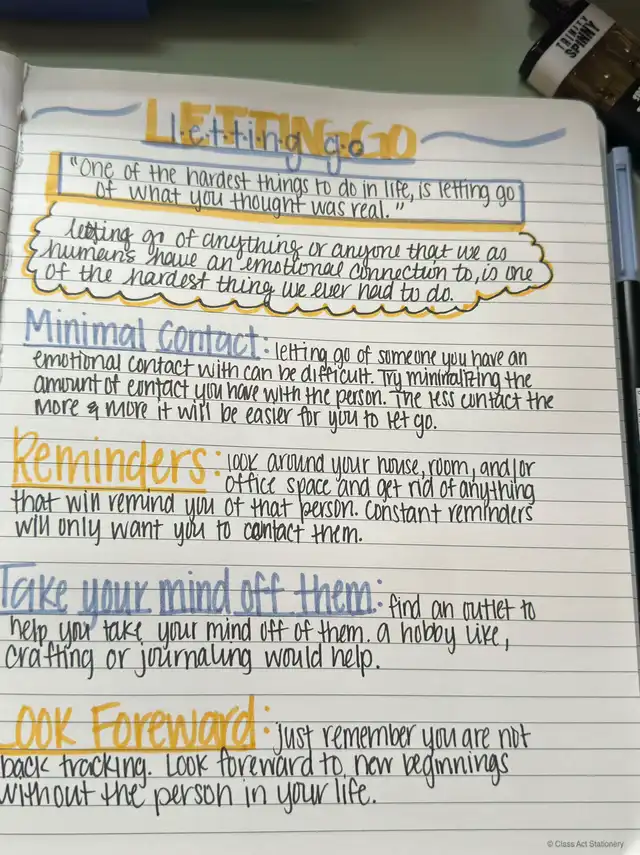 TRINITY
SPINNY
LETTING GO
letting go
"One of the hardest things to do in life, is letting go
of what you thought was real."
letting go of anything or anyone that we as
humans have an emotional connection to, is one
of the hardest thing we ever had to do.
Minimal Contact: letting go of someone you have an
emotional contact with can be difficult. Try minimalizing the
amount of contact you have with the person. The less contact the
more & more it will be easier for you to let go.
Reminders: look around your house, room, and/or
office space and get rid of anything
that will remind you of that person. Constant reminders
will only want you to contact them.
Take your mind off them: find an outlet to
help you take your mind off of them. a hobby like,
crafting or journaling would help.
Look Foreward: just remember you are not
back tracking. Look foreward to new beginnings
without the person in your life.
© Class Act Stationery